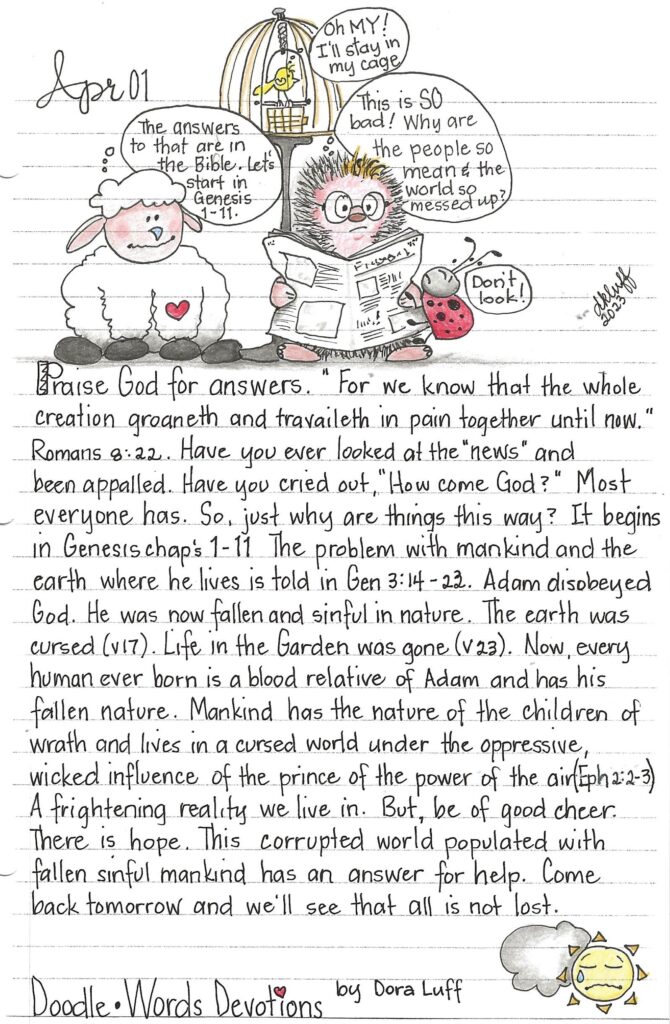 Apr 01
Oh MY!
I'll stay in
my cage
This is SO
bad! Why are
the people so
mean & the
world so
messed up?
The answers
to that are in
the Bible. Let's
start in
Genesis
1-11.
Don't
look!
dkluff
2023
Praise God for answers. "For we know that the whole
creation groaneth and travaileth in pain together until now."
Romans 8:22. Have you ever looked at the "news" and
been appalled. Have you cried out, "How come God?" Most
everyone has. So, just why are things this way? It begins
in Genesis chap's 1-11 The problem with mankind and the
earth where he lives is told in Gen 3:14-23. Adam disobeyed
God. He was now fallen and sinful in nature. The earth was
cursed (v17). Life in the Garden was gone (v23). Now, every
human ever born is a blood relative of Adam and has his
fallen nature. Mankind has the nature of the children of
wrath and lives in a cursed world under the oppressive,
wicked influence of the prince of the power of the air (Eph 2:2-3)
A frightening reality we live in. But, be of good cheer.
There is hope. This corrupted world populated with
fallen sinful mankind has an answer for help. Come
back tomorrow and we'll see that all is not lost.
Doodle • Words Devotions by Dora Luff